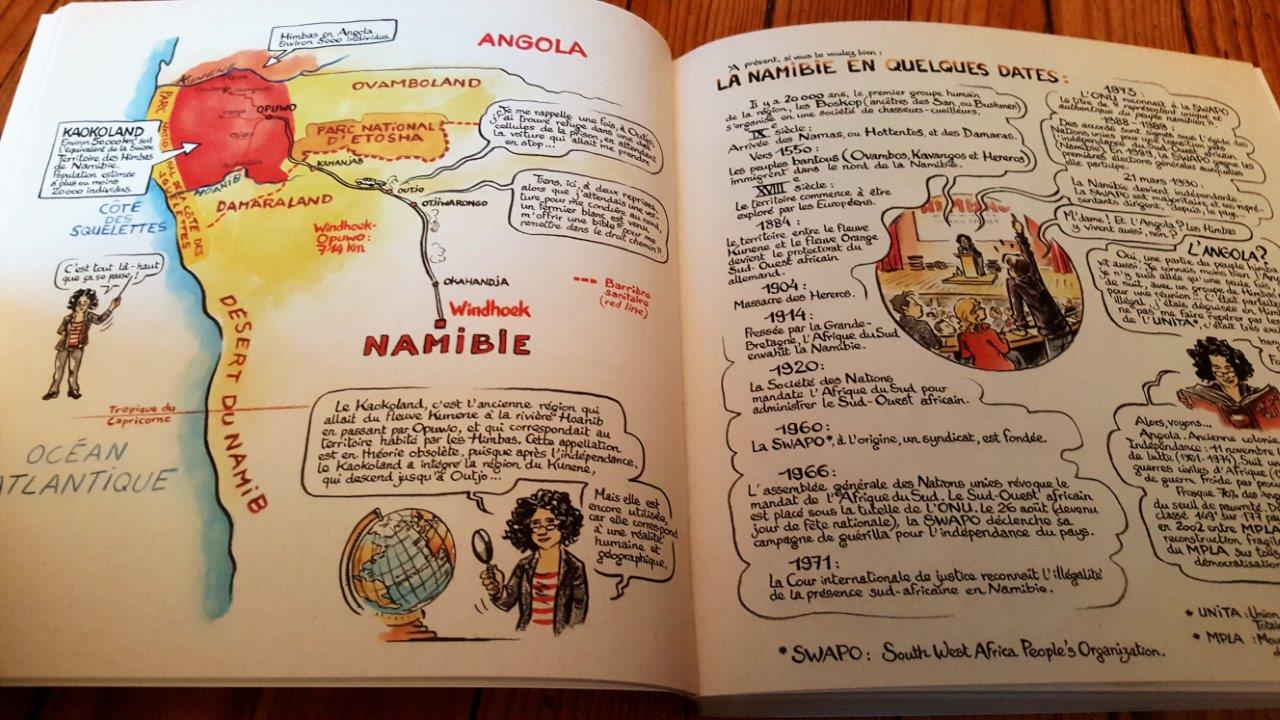 Himbas en Angola
Environ 5000 individus.
ANGOLA
KUNENE
OVAMBOLAND
OPUWO
PARC NATIONAL
D'ETOSHA
KAOKOLAND
Environ 50000 km², soit
l'équivalent de la Suisse
Territoire des Himbas
de Namibie.
Population estimée
à plus ou moins
20000 individus.
HOANIB
KAMANJAB
OUTJO
OTJIWARONGO
DAMARALAND
CÔTE
DES
SQUELETTES
Windhoek-
Opuwo:
714 Km
Je me rappelle une fois, à Outjo,
j'ai trouvé refuge dans une des
cellules de la prison, en attendant
la voiture qui allait me prendre
en stop...
Tiens, ici, à deux reprises
alors que j'attendais une voi-
ture pour me conduire au nord,
un fermier blanc est venu
m'offrir une bible "pour me
remettre dans le droit chemin"!!
C'est tout là-haut
que ça se passe!
OKAHANDJA
Windhoek
NAMIBIE
Barrière
sanitaire
(red line)
DÉSERT DU NAMIB
Tropique du
Capricorne
OCÉAN
ATLANTIQUE
Le Kaokoland, c'est l'ancienne région qui
allait du fleuve Kunene à la rivière Hoanib
en passant par Opuwo, et qui correspondait au
territoire habité par les Himbas. Cette appellation
est en théorie obsolète, puisque après l'indépendance,
le Kaokoland a intégré la région du Kunene,
qui descend jusqu'à Outjo...
Mais elle est
encore utilisée,
car elle correspond
à une réalité
humaine et
géographique.
A présent, si vous le voulez bien :
LA NAMIBIE EN QUELQUES DATES :
Il y a 20 000 ans, le premier groupe humain
de la région, les Boskop (ancêtres des San, ou Bushmen)
s'organise en une société de chasseurs-cueilleurs.
IXe siècle :
Arrivée des Namas, ou Hottentots, et des Damaras.
Vers 1550 :
Les peuples bantous (Ovambos, Kavangos et Hereros)
immigrent dans le nord de la Namibie.
XVIIIe siècle :
Le territoire commence à être
exploré par les Européens.
1884 :
le territoire entre le fleuve
Kunene et le fleuve Orange
devient le protectorat du
Sud-Ouest africain
allemand.
1904 :
Massacre des Hereros.
1914 :
Pressée par la Grande-
Bretagne, l'Afrique du Sud
envahit la Namibie.
1920 :
la Société des Nations
mandate l'Afrique du Sud pour
administrer le Sud-Ouest africain.
1960 :
La SWAPO*, à l'origine, un syndicat, est fondée.
1966 :
L'assemblée générale des Nations unies révoque le
mandat de l'Afrique du Sud. Le Sud-Ouest africain
est placé sous la tutelle de l'ONU. Le 26 août (devenu
jour de fête nationale), la SWAPO déclenche sa
campagne de guérilla pour l'indépendance du pays.
1971 :
La Cour internationale de justice reconnaît l'illégalité
de la présence sud-africaine en Namibie.
* SWAPO : South West Africa People's Organization.
1973 :
L'ONU reconnaît à la SWAPO
le titre de "représentant unique et
authentique du peuple namibien".
1988 - 1989 :
Des accords sont signés sous l'égide des
Nations unies
indépendance du Sud-Ouest africain
en 1989, la SWAPO gagne les
premières élections générales
elle participe.
21 mars 1990 :
La Namibie devient indépendante.
la SWAPO est majoritaire et ses repré-
sentants dirigent, depuis, le pays...
M'dame! Et l'Angola? Les Himbas
y vivent aussi, non?
L'ANGOLA?
Oui, une partie du peuple himba
vit aussi. Je connais moins bien
je n'y suis allée qu'une seule fois,
de nuit, avec un groupe de
pour une réunion. C'était parfaite
illégal, j'étais déguisée en Him
ne pas me faire repérer par les
de l'UNITA*, c'était très
Alors, voyons...
Angola. Ancienne colonie
Indépendance : 11 novembre
de lutte (1961-1974). Suit
guerres civiles d'Afrique
de guerre froide par
Presque 70% des Ango
du seuil de pauvreté.
classé 161e sur 177 pa
en 2002 entre MPLA
reconstruction fragile
du MPLA sur tou
démocratisation
* UNITA : Union
Totale
* MPLA : Mou